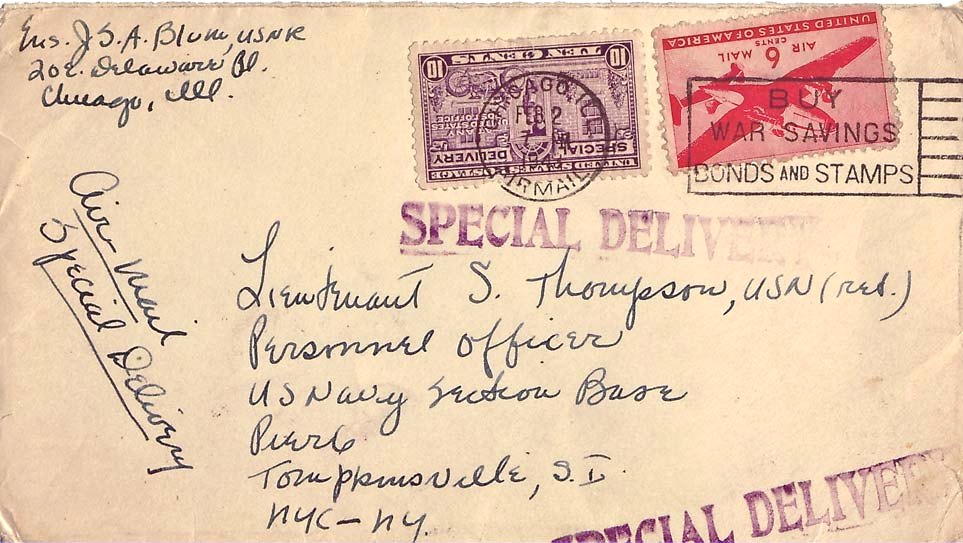 Ens. J.S.A. Blum, USNR
20 E. Delaware Pl.
Chicago, Ill.
UNITED STATES POSTAGE
SPECIAL DELIVERY
AT ANY
UNITED STATES
POST OFFICE
TEN CENTS
10 10
UNITED STATES OF AMERICA
6 CENTS
AIR MAIL
CHICAGO, ILL.
FEB 2
AIRMAIL
BUY
WAR SAVINGS
BONDS AND STAMPS
SPECIAL DELIVERY
Air Mail
Special Delivery
Lieutenant S. Thompson, USN (ret.)
Personnel Officer
US Navy Section Base
Pier 6
Tompkinsville, S.I.
NYC-NY.
SPECIAL DELIVERY